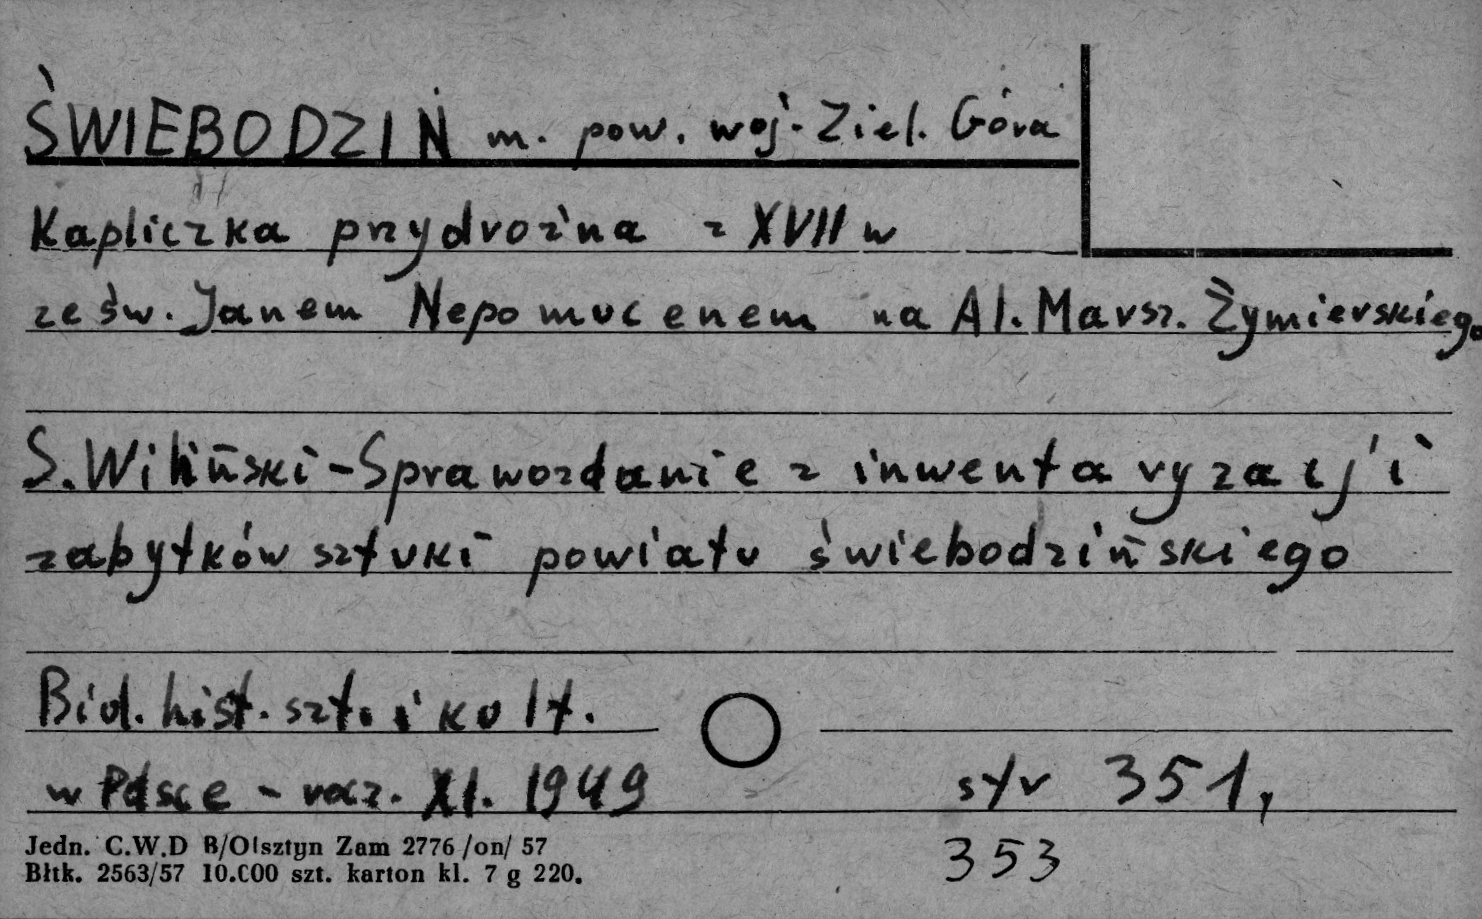 ŚWIEBODZIN m. pow. woj. Ziel. Góra
Kapliczka przydrożna z XVII w
ze św. Janem Nepomucenem na Al. Marsz. Żymierskiego
S. Wiliński - Sprawozdanie z inwentaryzacji
zabytków sztuki powiatu świebodzińskiego
Biul. hist. szt. i kult.
w Polsce - rocz. XI. 1949 str 351,
353
Jedn. C.W.D B/Olsztyn Zam 2776 /on/ 57
Błtk. 2563/57 10.000 szt. karton kl. 7 g 220.